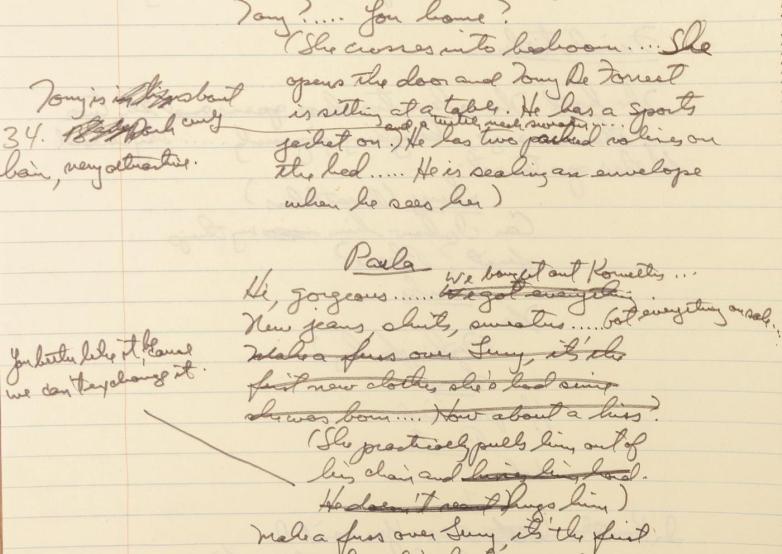 Tony?..... You home?
(She crosses into bedroom.... She
opens the door and Tony De Forrest
is sitting at a table. He has a sports
and a turtle neck sweater....
jacket on.) He has two packed valises on
the bed..... He is sealing an envelope
when he sees her)
Tony is about
34. Dark curly
hair, very attractive.
Paula
We bought out Korvettes...
Hi, gorgeous...... We got everything.
New jeans, shirts, sweaters..... Got everything on sale...
You better like it 'cause
we can't exchange it.
Make a fuss over Lucy, it's the
first new clothes she's had since
she was born.... How about a kiss?
(She practically pulls him out of
his chair and kisses him hard.
He doesn't react hugs him)
Make a fuss over Lucy, it's the first